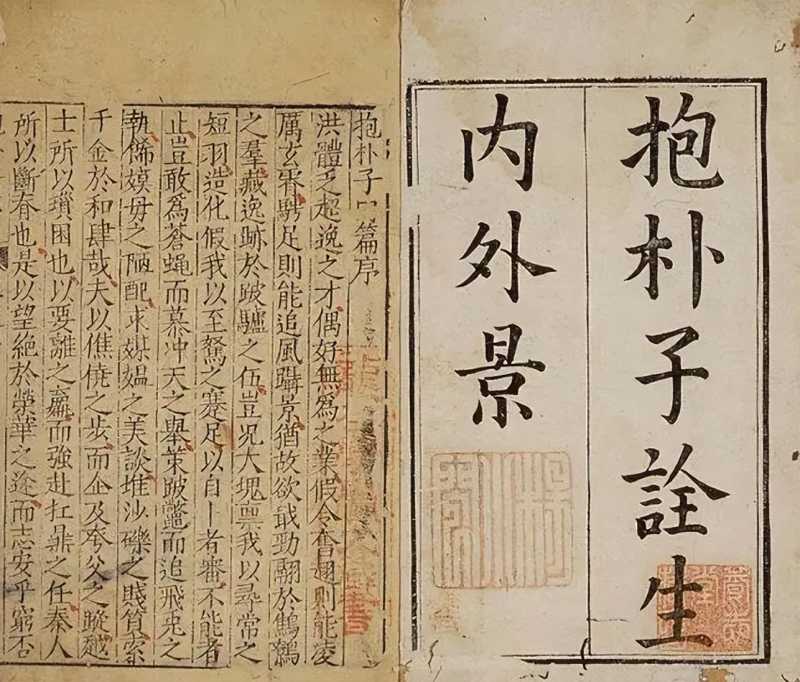 抱朴子詮生
内外景
抱朴子内篇序
洪體乏超逸之才偶好無爲之業假令奮翅則能凌
厲玄霄騁足則能追風躡景猶故欲戢勁翮於鷦鷃
之羣藏逸跡於跛驢之伍豈况大塊禀我以尋常之
短羽造化假我以至駑之蹇足以自卜者審不能者
止豈敢爲蒼蝇而慕冲天之舉策跛鼈而追飛兎之
軌儕嫫母之陋醜求媒媪之美談堆沙礫之賤質索
千金於和肆哉夫以僬僥之步而企及夸父之蹤越
士所以瑣困也以要離之羸而強赴扛鼎之任秦人
所以斷脊也是以望絶於榮華之途而志安乎窮否